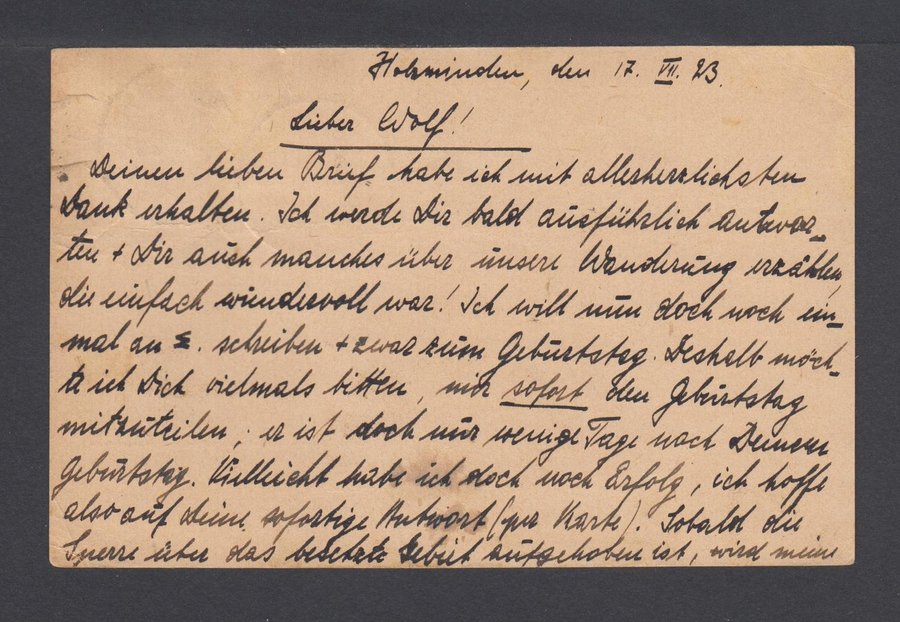 Holzminden, den 17. VII. 23.
Lieber Wolf!
Deinen lieben Brief habe ich mit allerherzlichsten
Dank erhalten. Ich werde Dir bald ausführlich antwor-
ten + Dir auch manches über unsere Wanderung erzählen,
die einfach wundervoll war! Ich will nun doch noch ein-
mal an E. schreiben + zwar zum Geburtstag. Deshalb möch-
te ich Dich vielmals bitten, mir sofort den Geburtstag
mitzuteilen, er ist doch nur wenige Tage nach Deinem
Geburtstag. Vielleicht habe ich doch noch Erfolg, ich hoffe
also auf Deine sofortige Antwort (per Karte). Sobald die
Sperre über das besetzte Gebiet aufgehoben ist, wird meine